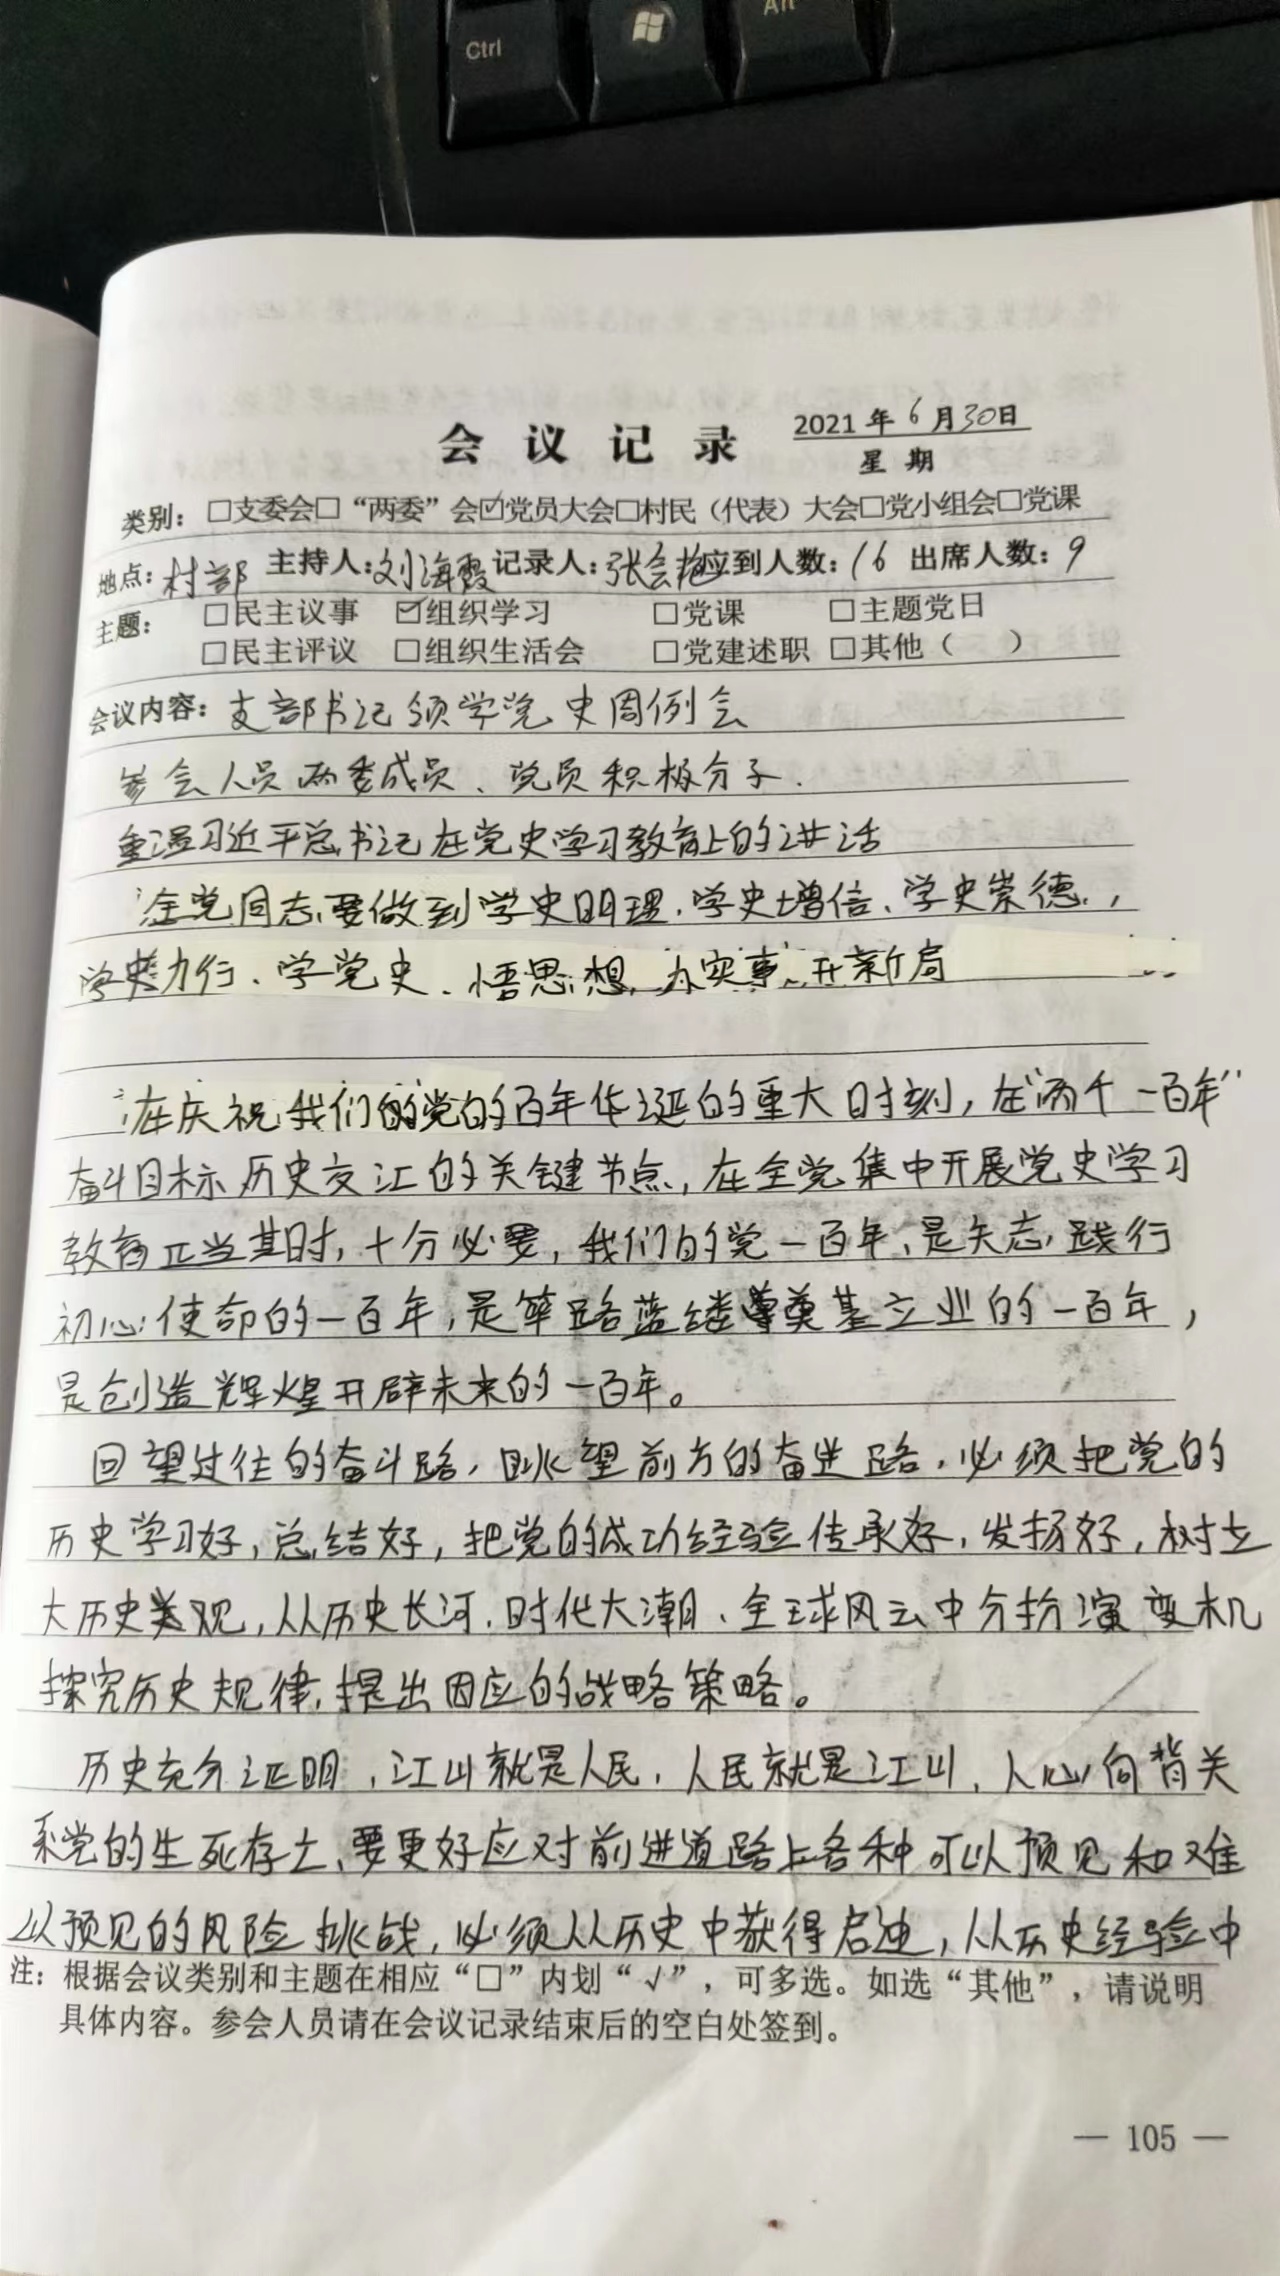 Ctrl
Alt
会议记录
2021年6月30日
星期
类别：□支委会□“两委”会☑党员大会□村民（代表）大会□党小组会□党课
地点：村部 主持人：刘海霞 记录人：张会艳 应到人数：16 出席人数：9
主题：
□民主议事 ☑组织学习 □党课 □主题党日
□民主评议 □组织生活会 □党建述职 □其他（ ）
会议内容：支部书记领学党史周例会
参会人员两委成员、党员积极分子.
重温习近平总书记在党史学习教育上的讲话
全党同志要做到学史明理、学史增信、学史崇德，
学史力行、学党史、悟思想、办实事、开新局
在庆祝我们的党的百年华诞的重大时刻，在“两个一百年”
奋斗目标历史交汇的关键节点，在全党集中开展党史学习
教育正当其时，十分必要，我们的党一百年、是矢志践行
初心使命的一百年，是筚路蓝缕奠基立业的一百年，
是创造辉煌开辟未来的一百年。
回望过往的奋斗路，眺望前方的奋进路，必须把党的
历史学习好，总结好，把党的成功经验传承好，发扬好，树立
大历史观，从历史长河、时代大潮、全球风云中分扮演变机
探究历史规律，提出因应的战略策略。
历史充分证明，江山就是人民，人民就是江山，人心向背关
系党的生死存亡、要更好应对前进道路上各种可以预见和难
以预见的风险挑战，必须从历史中获得启迪，从历史经验中
注：根据会议类别和主题在相应“□”内划“√”，可多选。如选“其他”，请说明
具体内容。参会人员请在会议记录结束后的空白处签到。
— 105 —